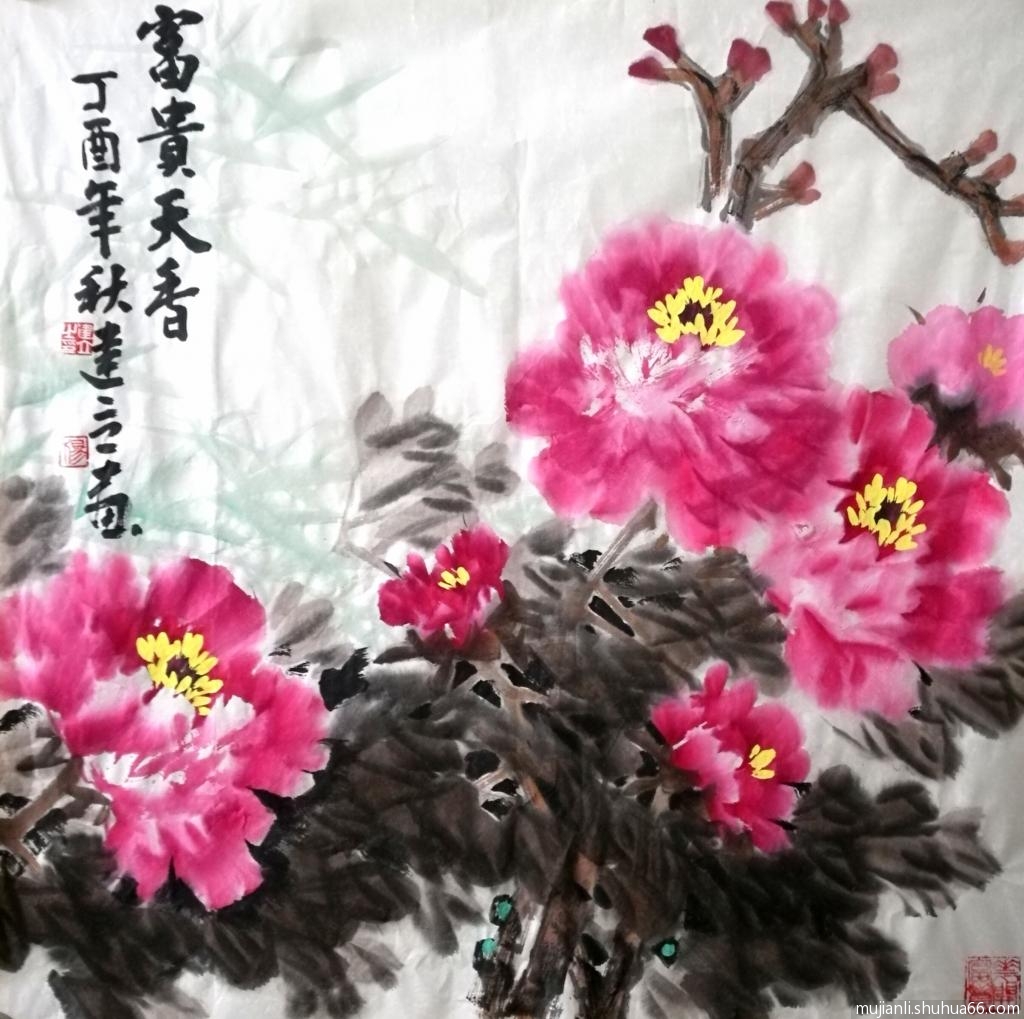 富貴天香
丁酉年秋建立画
mujianli.shuhua66.com